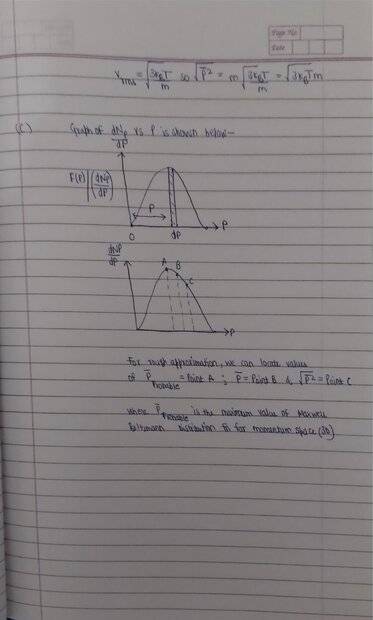 Page No
Date
Vrms = √(3kBT/m) so √P̄² = m √(3kBT/m) = √(3kBTm)
(c) Graph of dNp/dP vs P is shown below-
F(P) | (dNp/dP)
P
P
0
dP
dNP/dP
A B
C
P
For rough approximation, we can locate values
of P̄ = Point A ; P̄ = Point B & √P̄² = Point C
where P̄ is the maximum value of Maxwell
Boltzmann distribution fn for momentum space (3D)